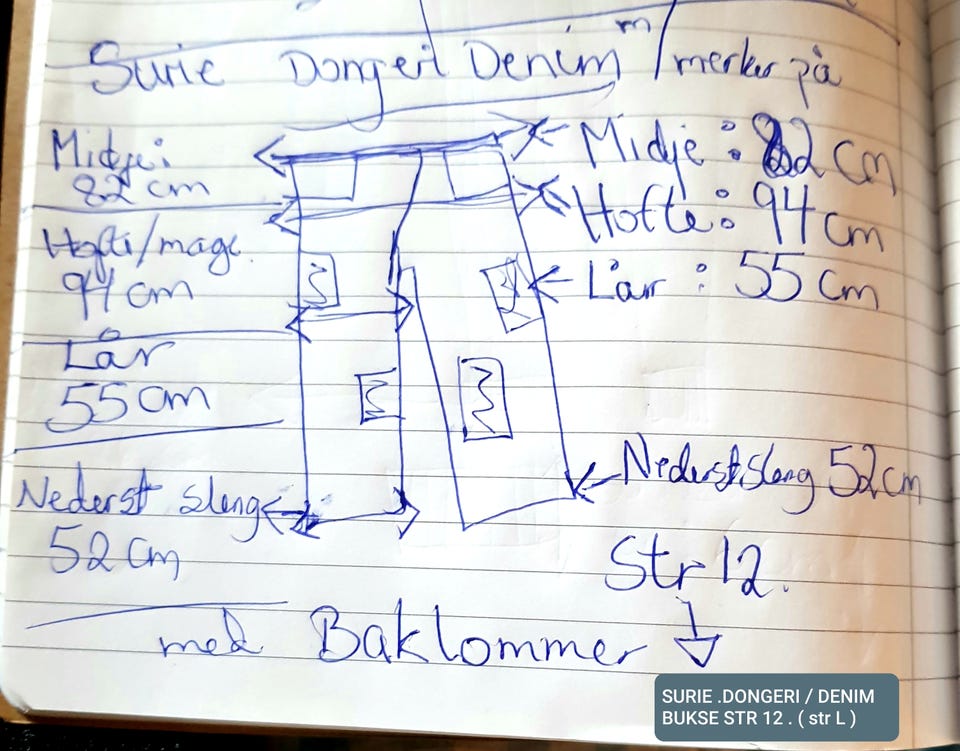 Surie Dongeri Denim m/merker på
Midje:
82 cm
Hofte/mage.
94 cm
Lår
55 cm
Nederst sleng
52 cm
Midje: 82 cm
Hofte: 94 cm
Lår: 55 cm
Nederst sleng 52 cm
Str 12.
med Baklommer
SURIE .DONGERI / DENIM
BUKSE STR 12 . ( str L )